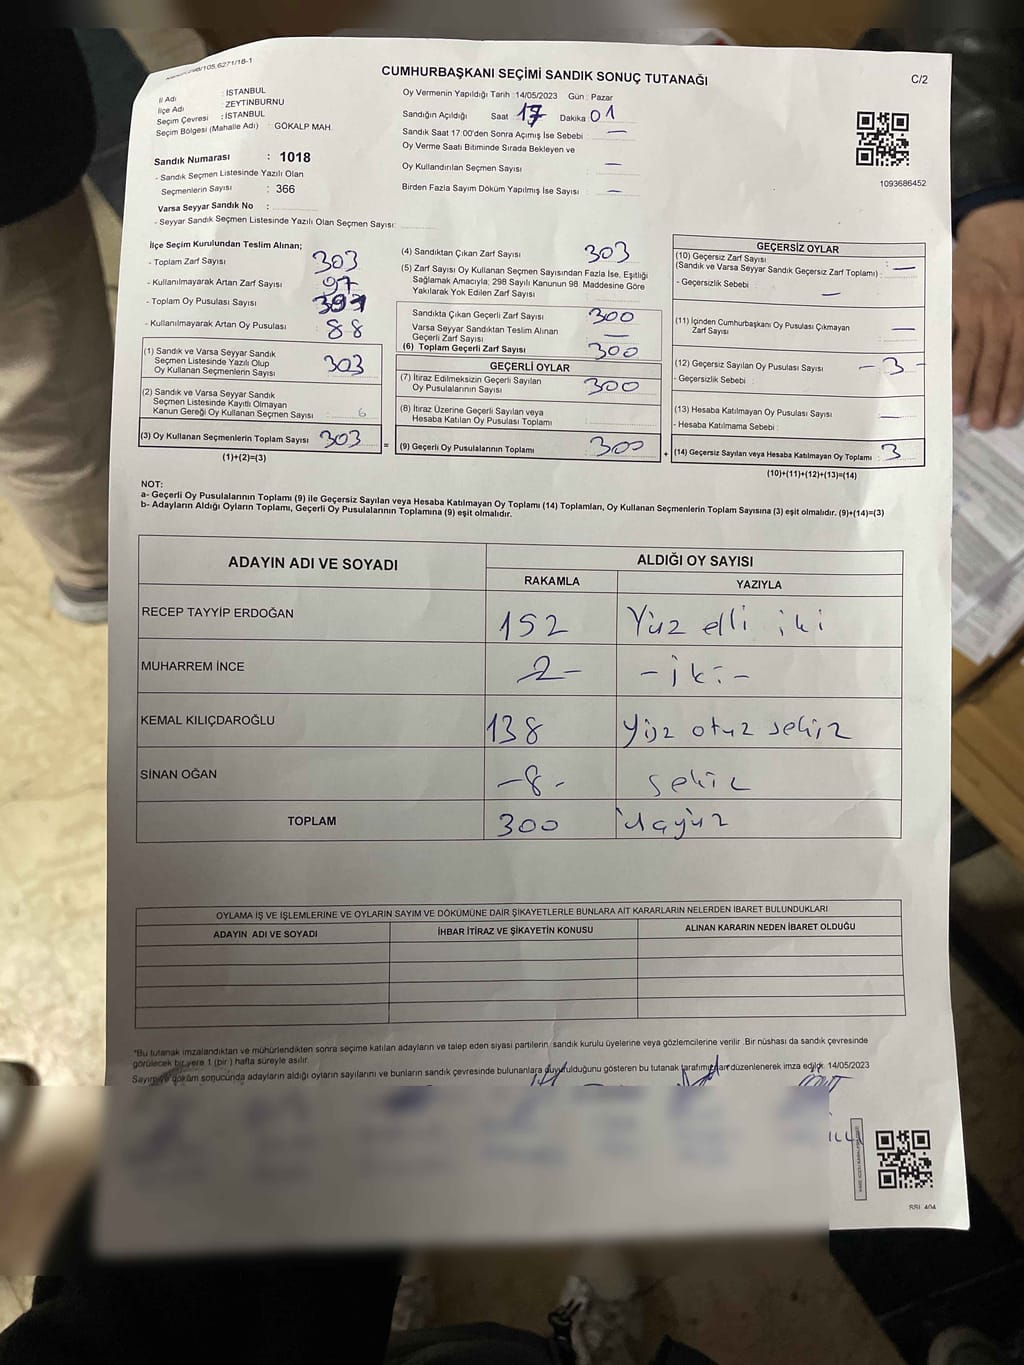 CUMHURBAŞKANI SEÇİMİ SANDIK SONUÇ TUTANAĞI
C/2
İl Adı : İSTANBUL
İlçe Adı : ZEYTİNBURNU
Seçim Çevresi : İSTANBUL
Seçim Bölgesi (Mahalle Adı) : GÖKALP MAH.
Sandık Numarası : 1018
- Sandık Seçmen Listesinde Yazılı Olan
Seçmenlerin Sayısı : 366
Varsa Seyyar Sandık No :
- Seyyar Sandık Seçmen Listesinde Yazılı Olan Seçmen Sayısı:
Oy Vermenin Yapıldığı Tarih :14/05/2023 Gün : Pazar
Sandığın Açıldığı Saat 17 Dakika 01
Sandık Saat 17.00'den Sonra Açımış İse Sebebi : —
Oy Verme Saati Bitiminde Sırada Bekleyen ve
Oy Kullandırılan Seçmen Sayısı : —
Birden Fazla Sayım Döküm Yapılmış İse Sayısı : —
1093686452
İlçe Seçim Kurulundan Teslim Alınan;
- Toplam Zarf Sayısı : 303
- Kullanılmayarak Artan Zarf Sayısı : 97
- Toplam Oy Pusulası Sayısı :
- Kullanılmayarak Artan Oy Pusulası : 88
(1) Sandık ve Varsa Seyyar Sandık
Seçmen Listesinde Yazılı Olup
Oy Kullanan Seçmenlerin Sayısı : 303
(2) Sandık ve Varsa Seyyar Sandık
Seçmen Listesinde Kayıtlı Olmayan
Kanun Gereği Oy Kullanan Seçmen Sayısı : 6
(3) Oy Kullanan Seçmenlerin Toplam Sayısı : 303
(1)+(2)=(3)
(4) Sandıktan Çıkan Zarf Sayısı : 303
(5) Zarf Sayısı Oy Kullanan Seçmen Sayısından Fazla İse, Eşitliği
Sağlamak Amacıyla; 298 Sayılı Kanunun 98. Maddesine Göre
Yakılarak Yok Edilen Zarf Sayısı :
Sandıkta Çıkan Geçerli Zarf Sayısı : 300
Varsa Seyyar Sandıktan Teslim Alınan
Geçerli Zarf Sayısı : —
(6) Toplam Geçerli Zarf Sayısı : 300
GEÇERLİ OYLAR
(7) İtiraz Edilmeksizin Geçerli Sayılan
Oy Pusulalarının Sayısı : 300
(8) İtiraz Üzerine Geçerli Sayılan veya
Hesaba Katılan Oy Pusulası Toplamı :
= (9) Geçerli Oy Pusulalarının Toplamı : 300
GEÇERSİZ OYLAR
(10) Geçersiz Zarf Sayısı
(Sandık ve Varsa Seyyar Sandık Geçersiz Zarf Toplamı) : —
- Geçersizlik Sebebi : —
(11) İçinden Cumhurbaşkanı Oy Pusulası Çıkmayan
Zarf Sayısı : —
(12) Geçersiz Sayılan Oy Pusulası Sayısı : - 3 -
- Geçersizlik Sebebi :
(13) Hesaba Katılmayan Oy Pusulası Sayısı : —
- Hesaba Katılmama Sebebi :
+ (14) Geçersiz Sayılan veya Hesaba Katılmayan Oy Toplamı : 3
(10)+(11)+(12)+(13)=(14)
NOT:
a- Geçerli Oy Pusulalarının Toplamı (9) ile Geçersiz Sayılan veya Hesaba Katılmayan Oy Toplamı (14) Toplamları, Oy Kullanan Seçmenlerin Toplam Sayısına (3) eşit olmalıdır. (9)+(14)=(3)
b- Adayların Aldığı Oyların Toplamı, Geçerli Oy Pusulalarının Toplamına (9) eşit olmalıdır.
ADAYIN ADI VE SOYADI ALDIĞI OY SAYISI
RAKAMLA YAZIYLA
RECEP TAYYİP ERDOĞAN 152 Yüz elli iki
MUHARREM İNCE 2- -iki-
KEMAL KILIÇDAROĞLU 138 Yüz otuz sekiz
SİNAN OĞAN -8- sekiz
TOPLAM 300
OYLAMA İŞ VE İŞLEMLERİNE VE OYLARIN SAYIM VE DÖKÜMÜNE DAİR ŞİKAYETLERLE BUNLARA AİT KARARLARIN NELERDEN İBARET BULUNDUKLARI
ADAYIN ADI VE SOYADI İHBAR İTİRAZ VE ŞİKAYETİN KONUSU ALINAN KARARIN NEDEN İBARET OLDUĞU
*Bu tutanak imzalandıktan ve mühürlendikten sonra seçime katılan adayların ve talep eden siyasi partilerin sandık kurulu üyelerine veya gözlemcilerine verilir .Bir nüshası da sandık çevresinde
görülecek bir yere 1 (bir ) hafta süreyle asılır.
Sayım ve döküm sonucunda adayların aldığı oyların sayılarını ve bunların sandık çevresinde bulunanlara duyurulduğunu gösteren bu tutanak tarafımızdan düzenlenerek imza edildi. 14/05/2023